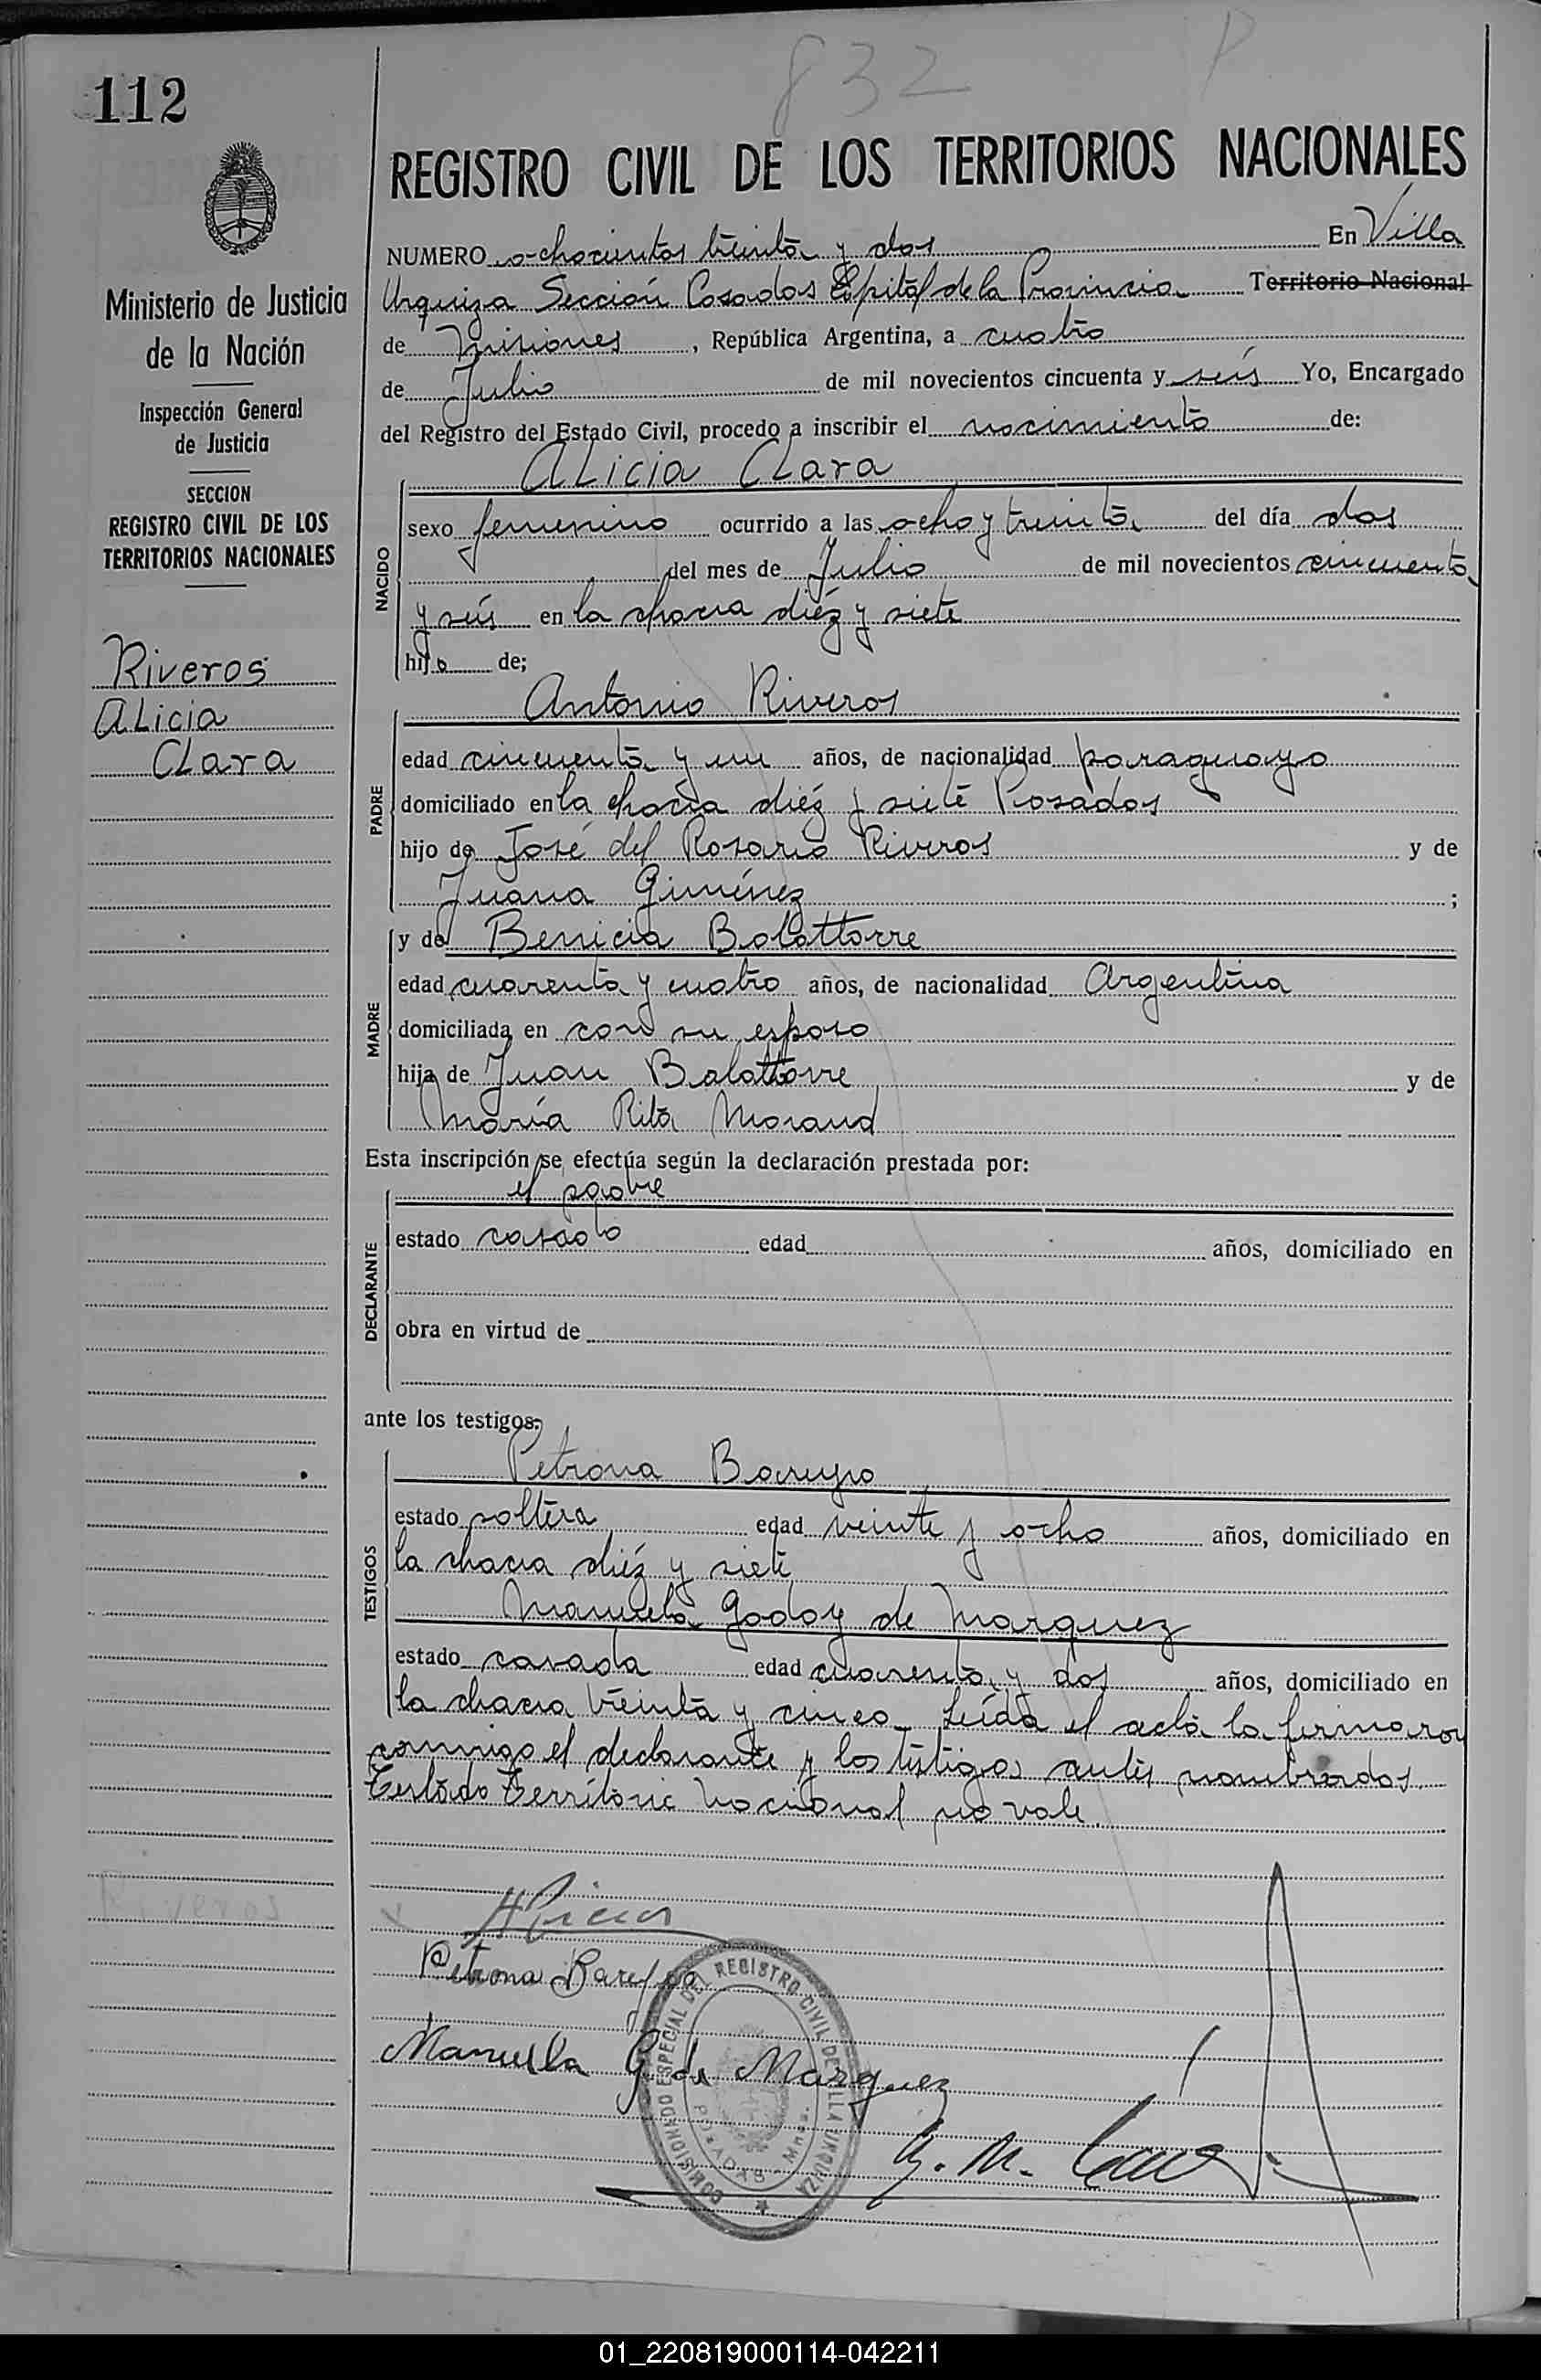 832 P
112
REGISTRO CIVIL DE LOS TERRITORIOS NACIONALES
NUMERO ochocientos treinta y dos En Villa
Urquiza Sección Posadas Cápital de la Provincia Territorio Nacional
de Misiones, República Argentina, a cuatro
de Julio de mil novecientos cincuenta y seis Yo, Encargado
del Registro del Estado Civil, procedo a inscribir el nacimiento de:
Ministerio de Justicia
de la Nación
Inspección General
de Justicia
SECCION
REGISTRO CIVIL DE LOS
TERRITORIOS NACIONALES
Riveros
Alicia
Clara
NACIDO
Alicia Clara
sexo femenino ocurrido a las ocho y treinta del día dos
del mes de Julio de mil novecientos cincuenta
y seis en la chacra diéz y siete
hija de;
PADRE
Antonio Riveros
edad cincuenta y un años, de nacionalidad paraguayo
domiciliado en la chacra diéz y siete Posadas
hijo de José del Rosario Riveros y de
Juana Giménez ;
MADRE
y de Benicia Bolattorre
edad cuarenta y cuatro años, de nacionalidad Argentina
domiciliada en con su esposo
hija de Juan Balattorre y de
María Rita Morand
Esta inscripción se efectúa según la declaración prestada por:
DECLARANTE
el padre
estado casado edad años, domiciliado en
obra en virtud de
ante los testigos:
TESTIGOS
Petrona Bareyro
estado soltera edad veinte y ocho años, domiciliado en
la chacra diéz y siete
Manuela Godoy de Marquez
estado casada edad cuarenta y dos años, domiciliado en
la chacra treinta y cinco. Leída el acta la firmaron
conmigo el declarante y los testigos antes nombrados.
Testado Territorio Nacional no vale.
Petrona Bareyro
Manuela G. de Marquez
COMISIONADO ESPECIAL DEL REGISTRO CIVIL DE VILLA URQUIZA
POSADAS - Mnes.
01_220819000114-042211